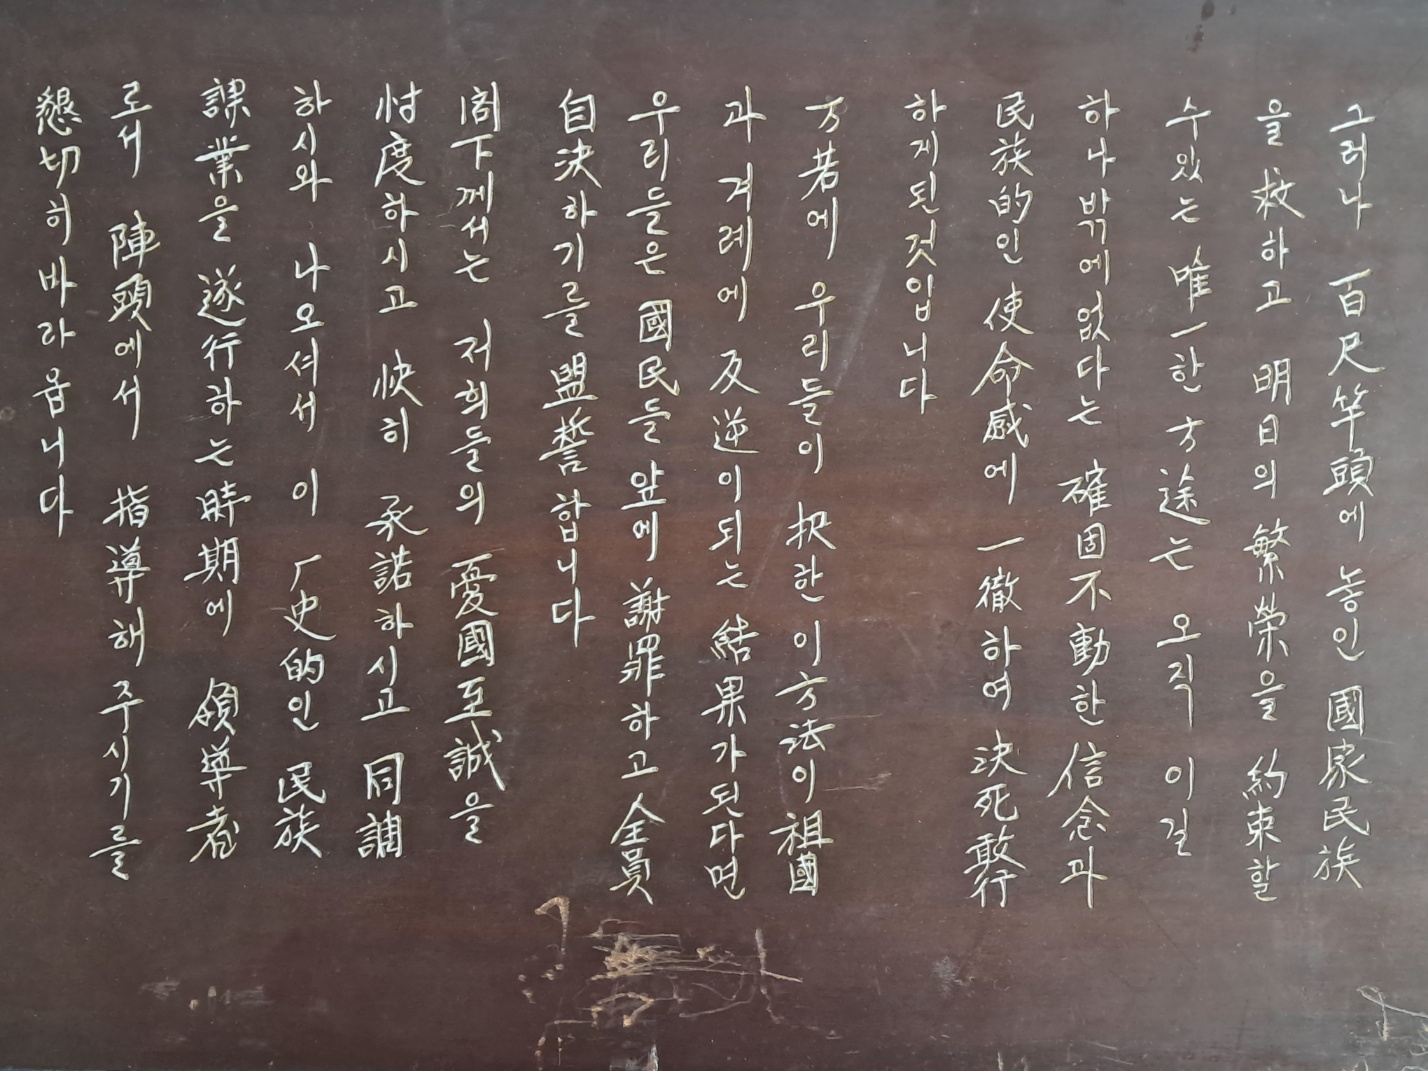 그러나 百尺竿頭에 놓인 國家民族
을 救하고 明日의 繁榮을 約束할
수있는 唯一한 方途는 오직 이길
하나밖에없다는 確固不動한 信念과
民族的인 使命感에 一徹하여 決死敢行
하게된것입니다
万若에 우리들이 択한 이 方法이 祖國
과 겨레에 反逆이되는 結果가된다면
우리들은 國民들 앞에 謝罪하고 全員
自決하기를 盟誓합니다
閤下께서는 저희들의 憂國至誠을
忖度하시고 快히 承諾하시고 同調
하시와 나오셔서 이 厂史的인 民族
課業을 遂行하는 時期에 領導者
로서 陣頭에서 指導해 주시기를
懇切히 바라옵니다